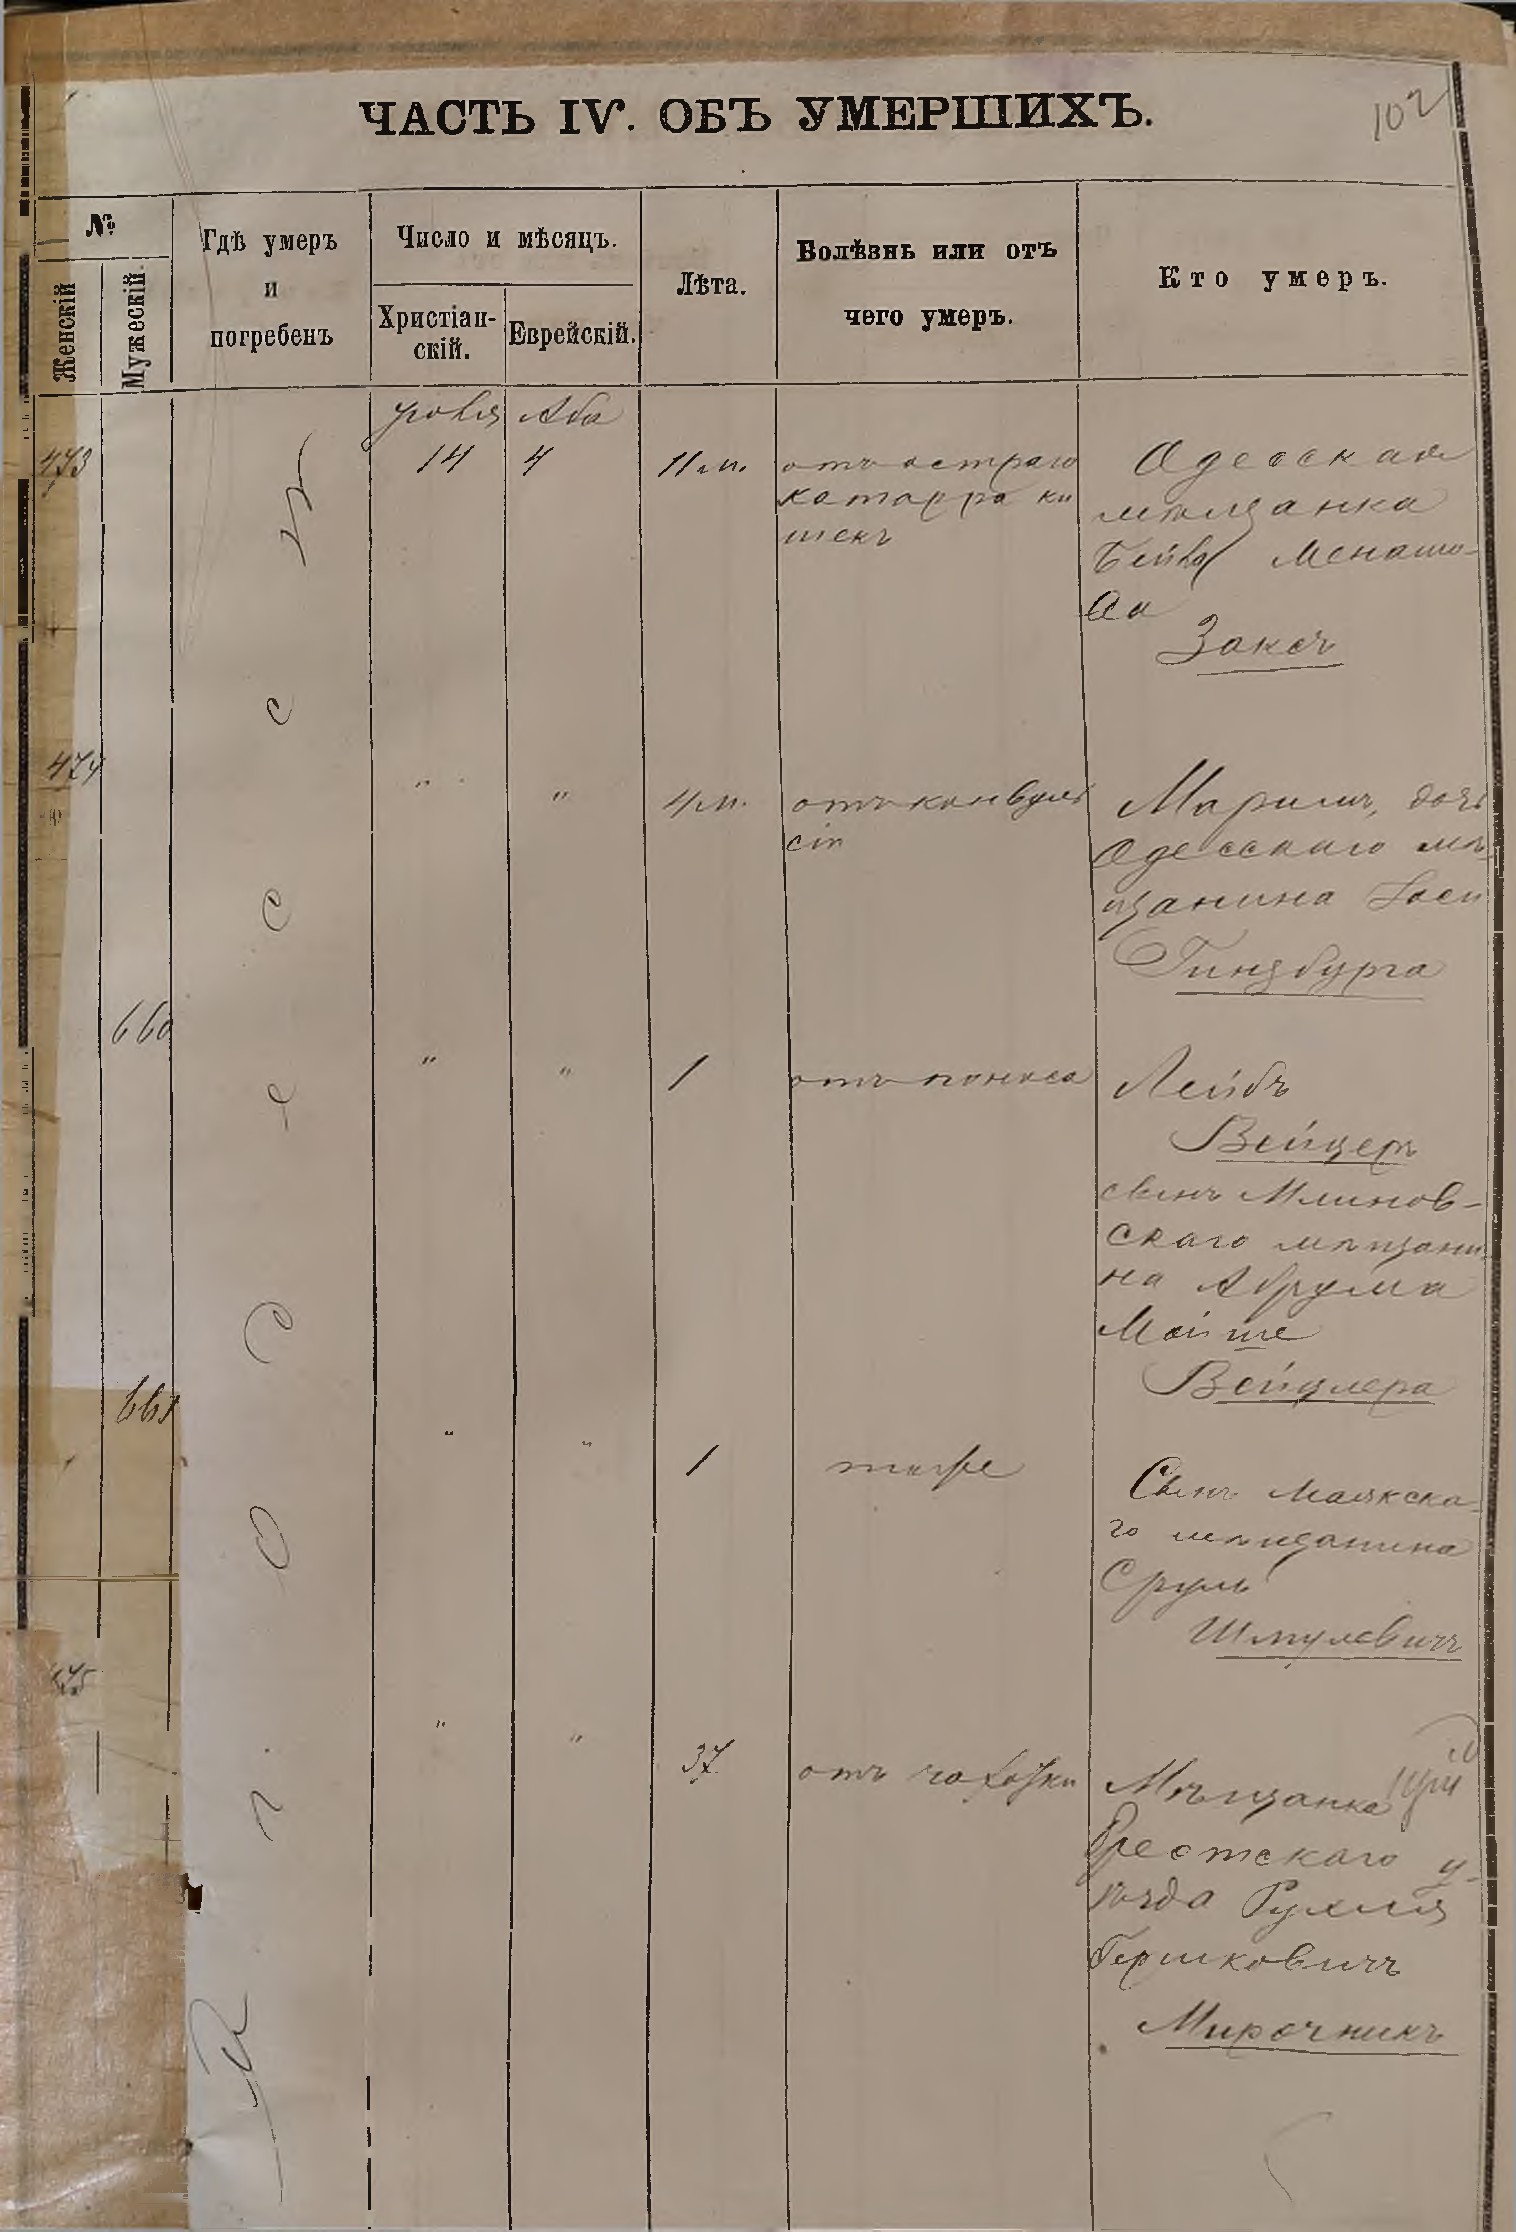 ЧАСТЬ IV. ОБЪ УМЕРШИХЪ.
102
№
Женскій
Мужескій.
Гдѣ умеръ
и
погребенъ
Число и мѣсяцъ.
Христіан-
скій.
Еврейскій.
Лѣта.
Болѣзнь или отъ
чего умеръ.
Кто умеръ.
въ г. Одессѣ
іюля Аба
473
14 4 11 м.
отъ остраго
катарра ки
шекъ
Одесская
мѣщанка
Бейла Менашо-
ва
Заксъ
474
" " 4 м.
отъ конвуль
сіи
Маріимъ, дочь
Одесскаго мѣ-
щанина Іоси
Гинзбурга
660
" " 1
отъ поноса
Лейбъ
Вейцеръ
сынъ Млинов-
скаго мѣщани-
на Абрума
Мойше
Вейцлера
661
" " 1
тоже
Сынъ Маякска-
го мѣщанина
Сруль
Шмулевичъ
475
" " 37
отъ чахотки
Мѣщанка
Брестскаго у-
ѣзда Рухля
Гершковичъ
Мирочникъ